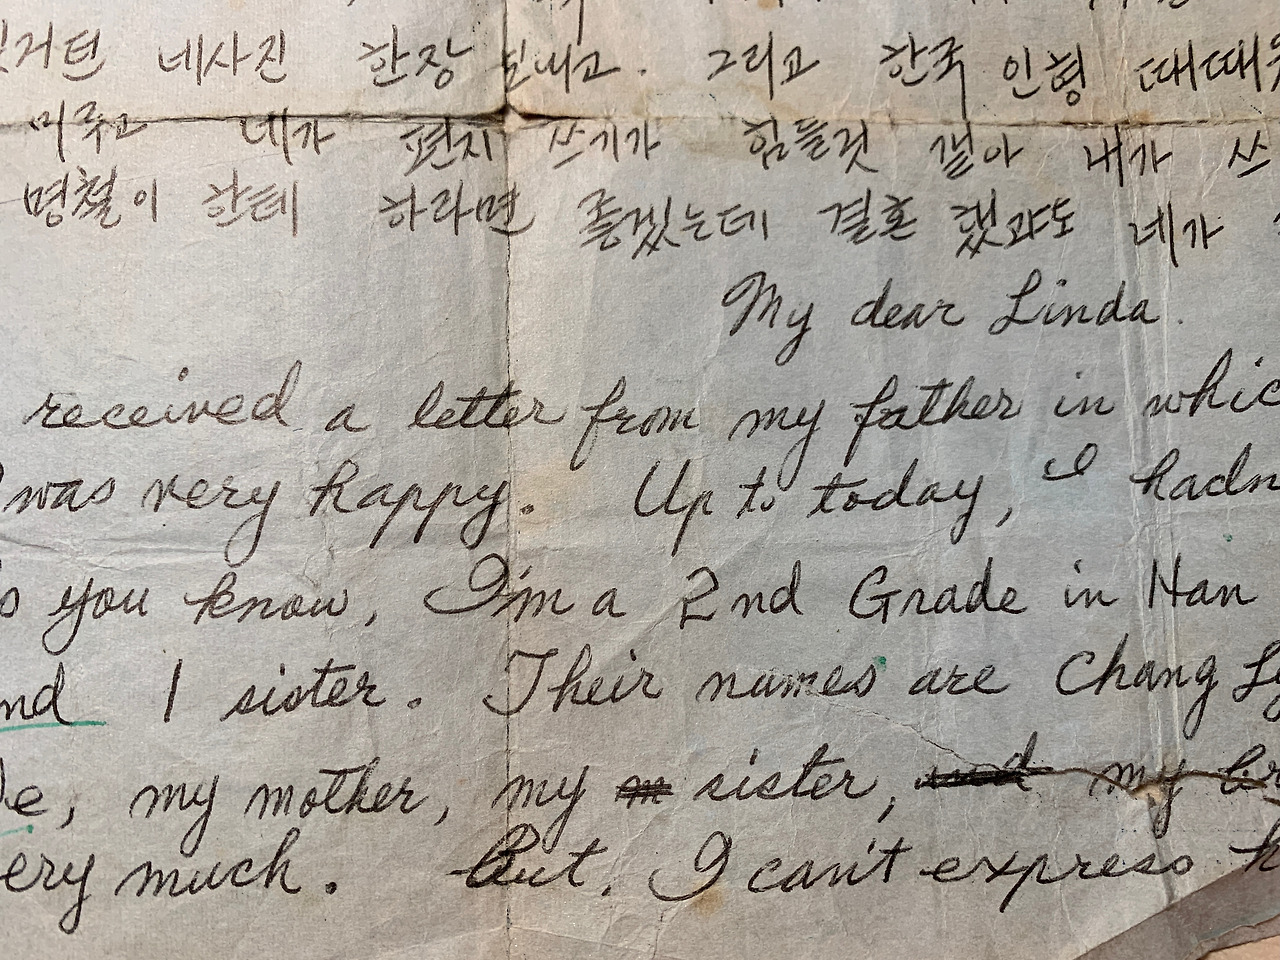 네사진 한장 보내고. 그리고 한국 인형 때때옷
네가 편지 쓰기가 힘들것 갤아 내가 쓰
명철이 한테 하라면 좋겠는데 결혼 했과도 네가
My dear Linda.
received a letter from my father in whic
was very happy. Up to today, I hadn
you know, I'm a 2nd Grade in Han
nd 1 sister. Their names are Chang
e, my mother, my sister, my br
ery much. But. I can't express h